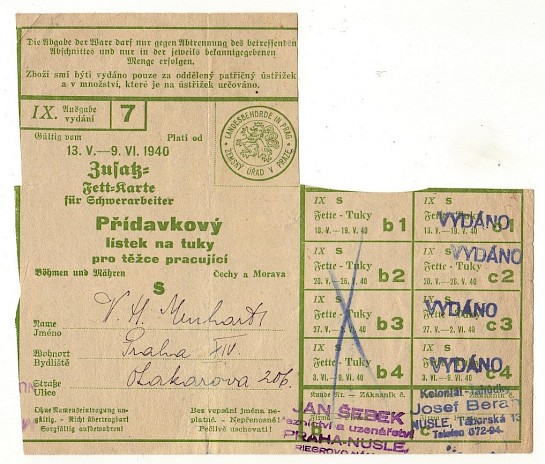 Die Abgabe der Ware darf nur gegen Abtrennung des betreffenden
Abschnittes und nur in der jeweils bekanntgegebenen
Menge erfolgen.
Zboží smí býti vydáno pouze za oddělený patřičný ústřižek
a v množství, které je na ústřižku určováno.
IX. Ausgabe vydání 7
LANDESBEHÖRDE IN PRAG
ZEMSKÝ ÚŘAD V PRAZE
Gültig vom Platí od
13. V.—9. VI. 1940
Zusatz-
Fett-Karte
für Schwerarbeiter
Přídavkový
lístek na tuky
pro těžce pracující
Böhmen und Mähren Čechy a Morava
S
Name
Jméno
Wohnort Praha XIV.
Bydliště
Straße
Ulice 206.
Ohne Namenseintragung un-
gültig. - Nicht übertragbar!
Sorgfältig aufbewahren!
Bez vepsání jména ne-
platné. - Nepřenosné!
Pečlivě uschovati!
IX S
Fette - Tuky b1
13. V.—19. V. 40
IX S
Fette - Tuky c1
13. V.—19. V. 40
VYDÁNO
IX S
Fette - Tuky b2
20. V.—26. V. 40
IX S
c2
VYDÁNO
IX S
Fette - Tuky b3
27. V.—2. VI. 40
IX S
c3
27. V.—2. VI. 40
VYDÁNO
IX S
Fette - Tuky b4
3. VI.—9. VI. 40
c4
3. VI.—9. VI. 40
VYDÁNO
Kunde Nr. - Zákazník č.
B
JAN ŠEBEK
řeznictví a uzenářství
PRAHA-NUSLE,
Kolonial-
Josef Beran
NUSLE, Táborská 13
Telefon 572-94.
C